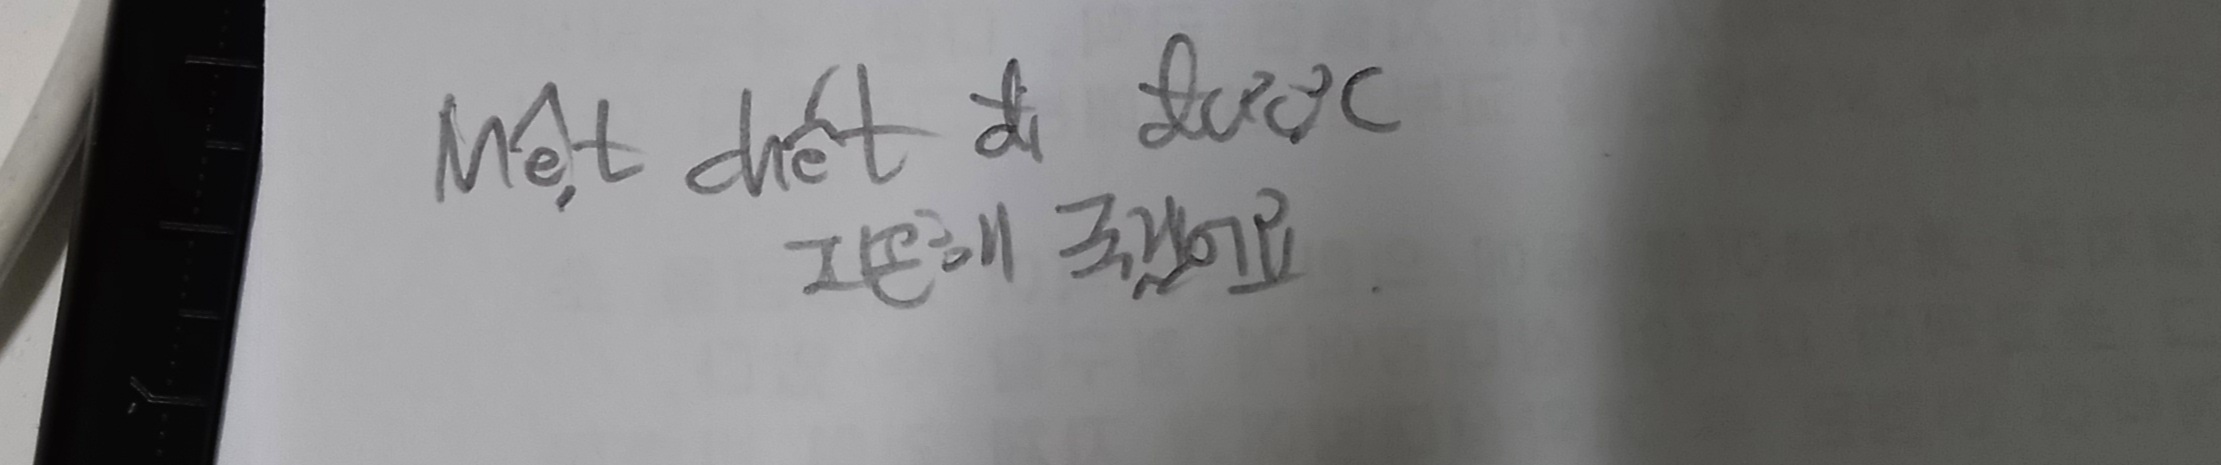 Mệt chết đi được
피곤해 죽겠어요